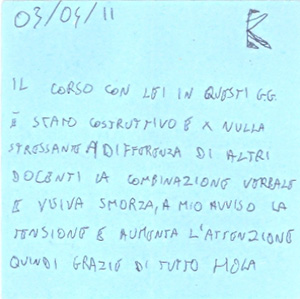 03/04/11
R
IL CORSO CON LEI IN QUESTI GG.
È STATO COSTRUTTIVO E X NULLA
STRESSANTE A DIFFERENZA DI ALTRI
DOCENTI LA COMBINAZIONE VERBALE
E VISIVA SMORZA, A MIO AVVISO LA
TENSIONE E AUMENTA L'ATTENZIONE
QUINDI GRAZIE DI TUTTO